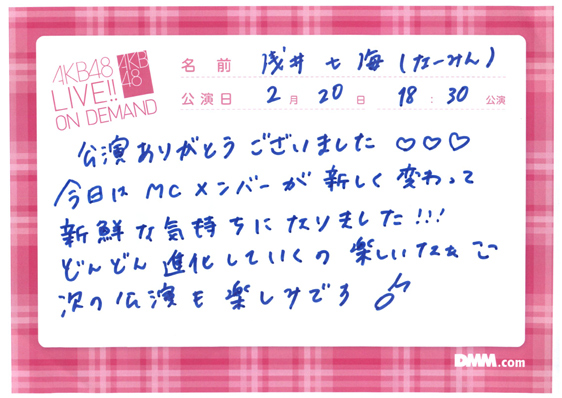 AKB48
LIVE!!
ON DEMAND
AKB
48
名前 浅井七海(なーみん)
公演日 2月20日 18:30公演
公演ありがとうございました♡♡♡
今日は MCメンバーが新しく変わって
新鮮な気持ちになりました!!!
どんどん進化していくの楽しいなぁ
次の公演も楽しみでろ♪
DMM.com